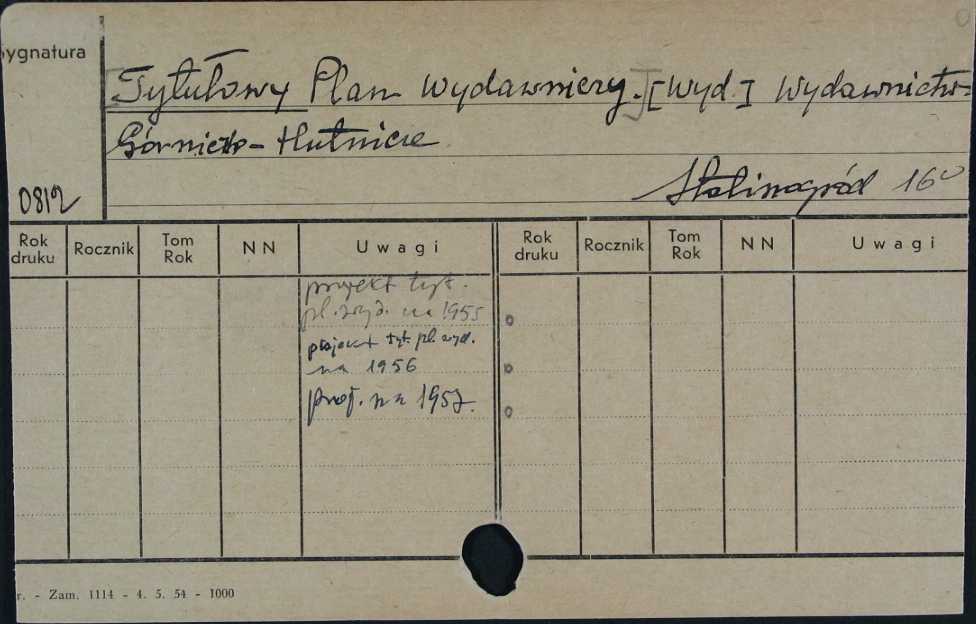 ygnatura
Tytułowy Plan Wydawniczy. [Wyd.] Wydawnictwo
Górniczo-Hutnicze
Stalinogród 16°
0812
Rok druku Rocznik Tom Rok NN Uwagi Rok druku Rocznik Tom Rok NN Uwagi
projekt tyt.
pl. wyd. na 1955
projekt tyt. pl. wyd.
na 1956
proj. na 1957.
r. - Zam. 1114 - 4. 5. 54 - 1000